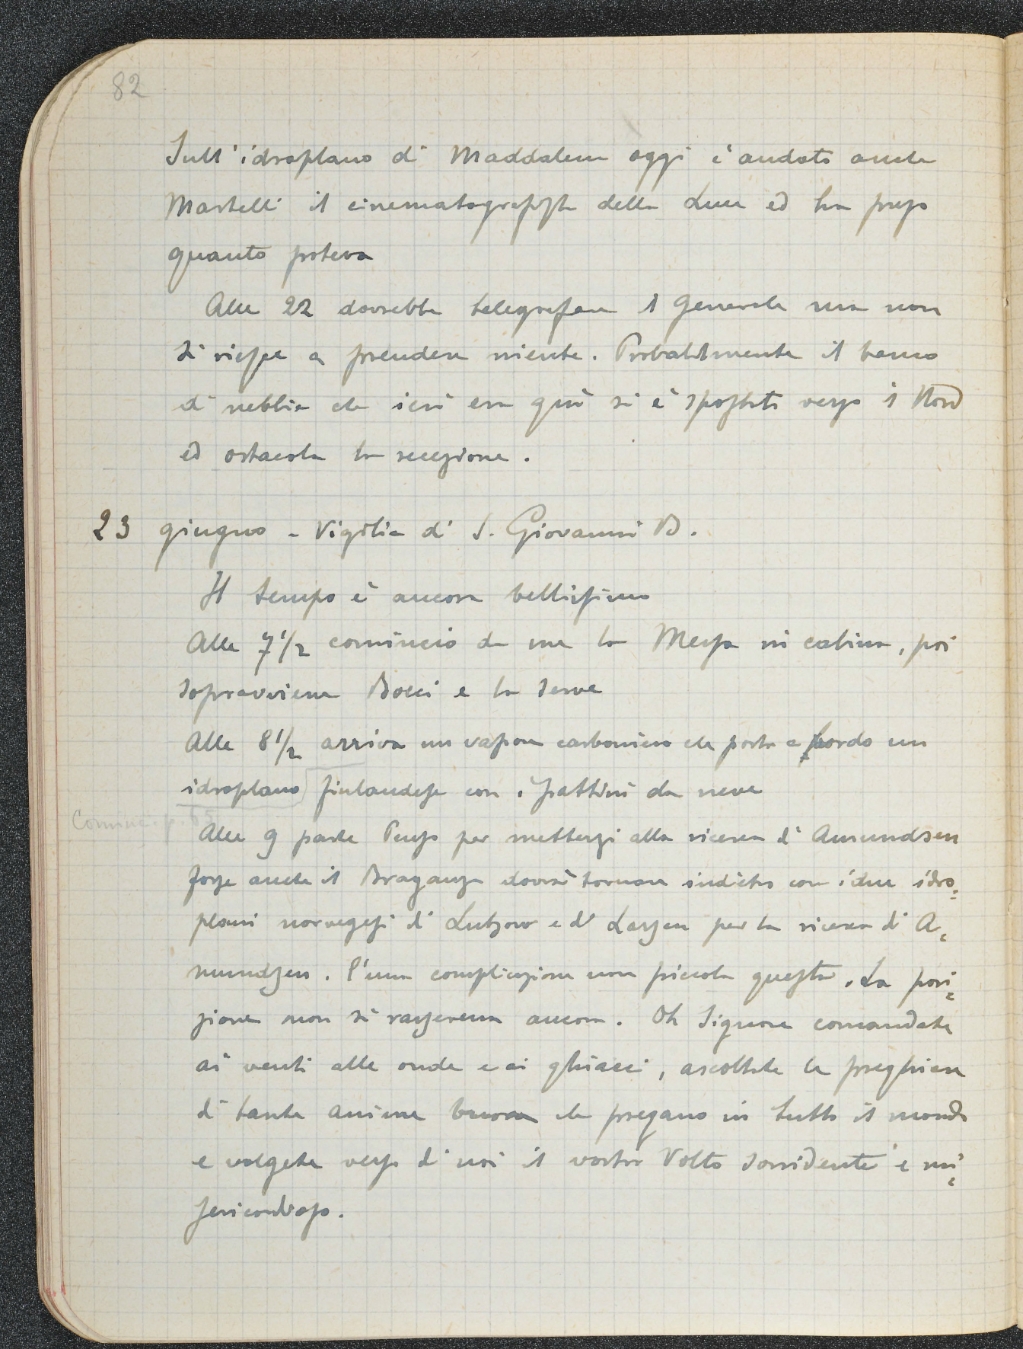 82
Sull'idroplano di Maddalena oggi è andato anche
Martelli il cinematografista della Luce ed ha preso
quanto poteva
Alle 22 dovrebbe telegrafare il Generale ma non
si riesce a prendere niente. Probabilmente il banco
di nebbia che ieri era quì si è spostato verso il Nord
ed ostacola la recezione.
23 giugno - Vigilia di S. Giovanni B.
Il tempo è ancora bellissimo
Alle 7 1/2 comincio da me la Messa in cabina, poi
sopravviene Bocci e la serve
Alle 8 1/2 arriva un vapore carboniero che porta a bordo un
idroplano finlandese con i pattini da neve
Alle 9 parte Penso per mettersi alla ricerca di Amundsen
forse anche il Braganza dovrà tornare indietro con i due idro=
plani norvegesi di Lutzow e di Larsen per la ricerca di A=
mundsen. È una complicazione non piccola questa. La posi=
zione non si rasserena ancora. Oh Signore comandate
ai venti alle onde e ai ghiacci, ascoltate le preghiere
di tante anime buone che pregano in tutto il mondo
e volgete verso di noi il vostro Volto sorridente e mi=
sericordioso.